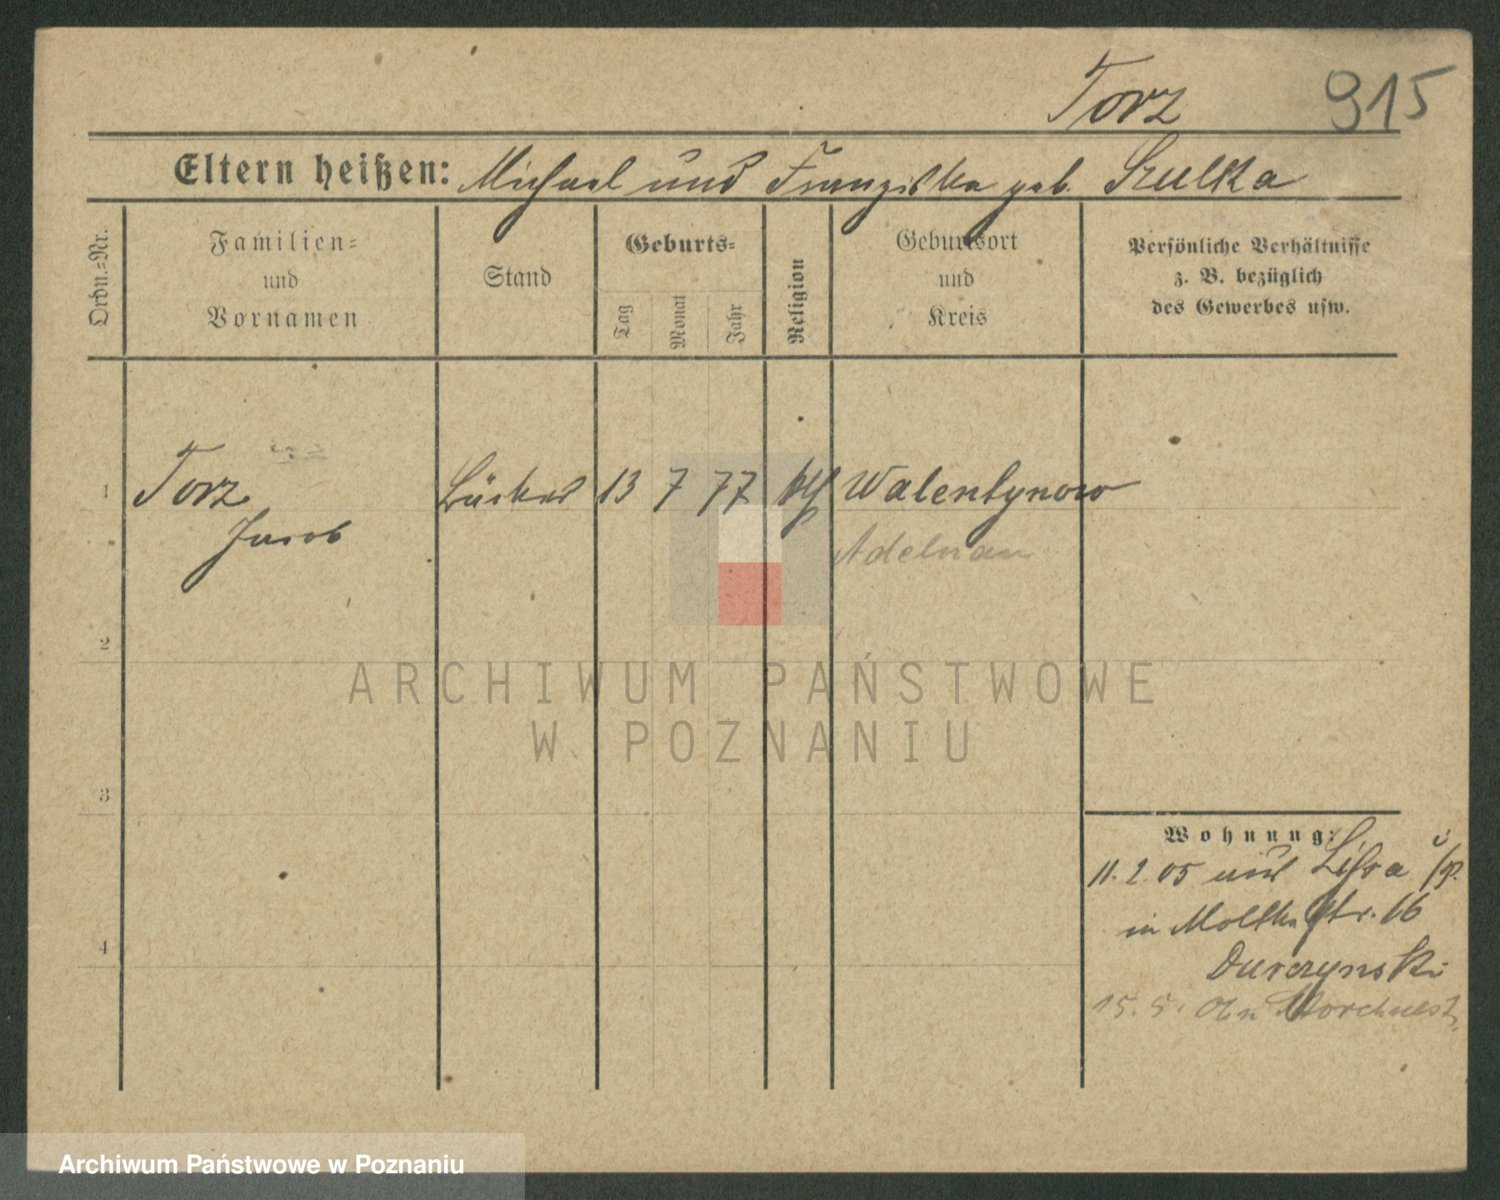 Torz 915
Eltern heißen: Michael und Franziska geb. Szulka
Ordn.=Nr.
Familien=
und
Vornamen
Stand
Geburts=
Tag
Monat
Jahr
Religion
Geburtsort
und
Kreis
Persönliche Verhältnisse
z. B. bezüglich
des Gewerbes usw.
1 Torz Bäcker 13 7 77 kth Walentynowo
Jacob Adelnau
2
3
4
Wohnung:
11. 2. 05 aus Lissa i/P.
in Moltkestr. 16
Durczynski
15. 5.
ARCHIWUM PAŃSTWOWE
W POZNANIU
Archiwum Państwowe w Poznaniu